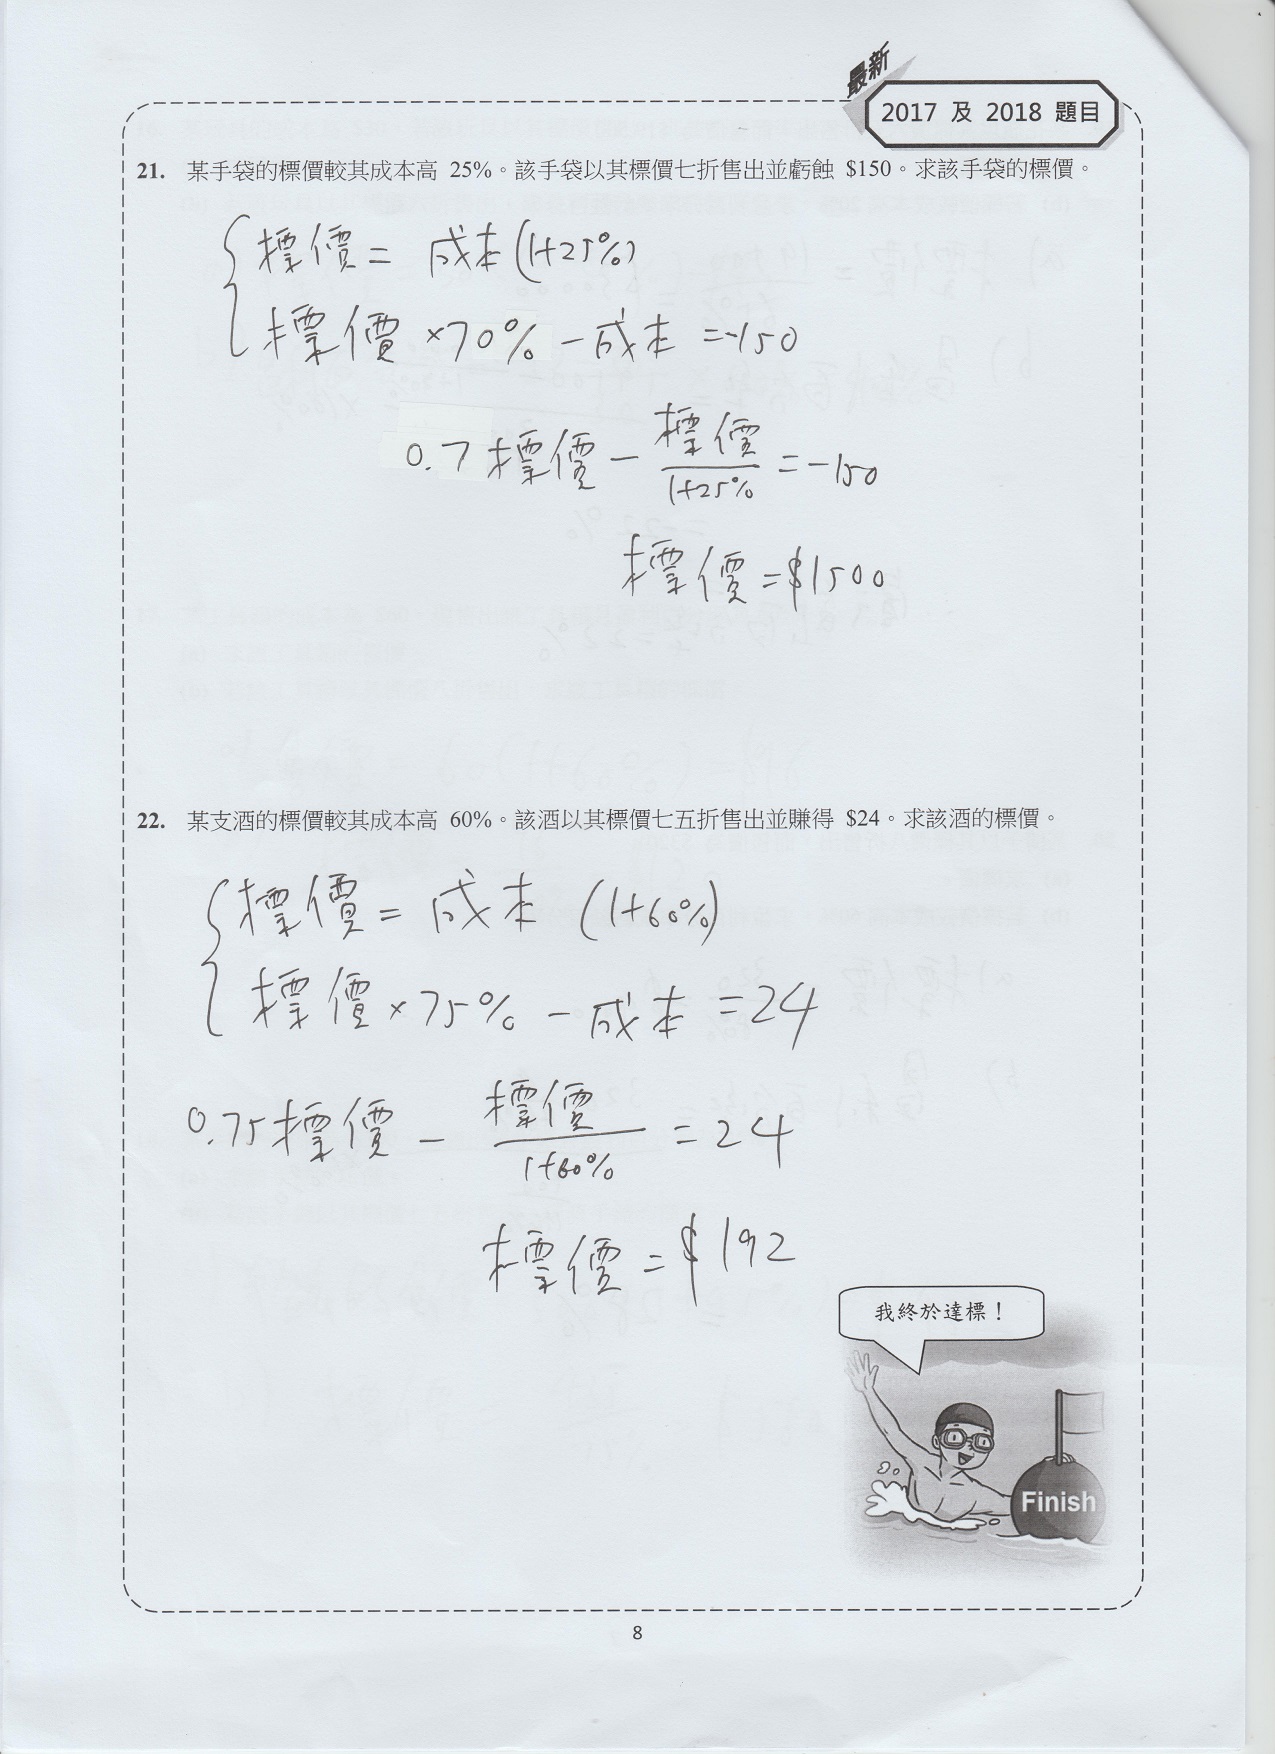 最新
2017 及 2018 題目
21. 某手袋的標價較其成本高 25%。該手袋以其標價七折售出並虧蝕 $150。求該手袋的標價。
標價 = 成本(1+25%)
標價×70% - 成本 = -150
0.7標價 - 標價/1+25% = -150
標價 = $1500
22. 某支酒的標價較其成本高 60%。該酒以其標價七五折售出並賺得 $24。求該酒的標價。
標價 = 成本 (1+60%)
標價×75% - 成本 = 24
0.75標價 - 標價/1+60% = 24
標價 = $192
我終於達標！
Finish
8